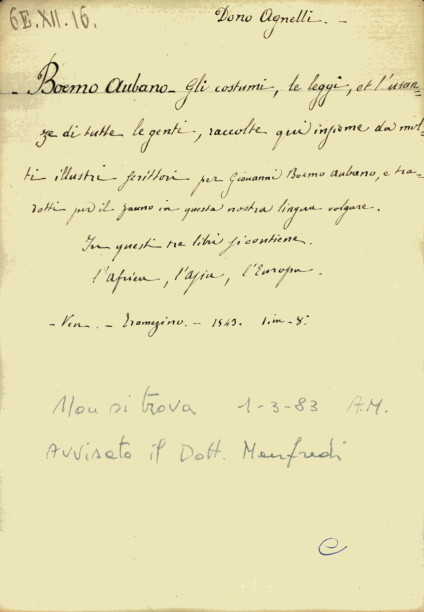 6E.XII.16.
Dono Agnelli. -
- Boemo Aubano - Gli costumi, le leggi, et l'usan-
ze di tutte le genti, raccolte qui insieme da mol-
ti illustri scrittori per Giovanni Boemo Aubano, e tra-
dotti per il Fauno in questa nostra lingua volgare.
In questi tre libri si contiene.
l'Africa, l'Asia, l'Europa.
- Ven. - Tramezino. - 1543. 1. in - 8.°
Non si trova 1-3-83 A.M.
Avvisato il Dott. Manfredi
C